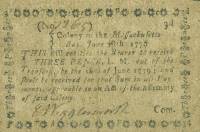 3d
Colony of the Massachusetts
Bay, June 18th. 1776
THIS Bill entitles the Bearer to receive
THREE PENCE, L. M. out of the
Treasury, by the 18th of June 1778, and
shall be received for that Sum in all Pay-
ments, agreeable to an Act of the Assembly
of said Colony.
Com.